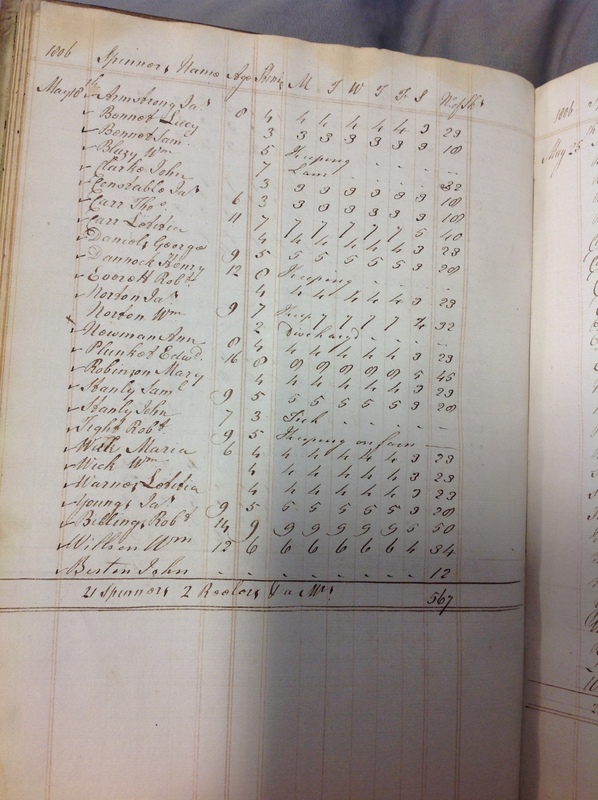 1806 Spinners Name Age Stint M T W T F S No Sks
May 18th Armstrong Jas 8 4 4 4 4 4 4 3 23
Bennet Lucy 3 3 3 3 3 3 3 18
Bennet Sam 5 Keeping
Blazy Wm 7 Lame 32
Clarke John 3 3 3 3 3 3 3 18
Constable Jas 6 3 3 3 3 3 3 3 18
Carr Thos 11 7 7 7 7 7 7 5 40
Carr Lobitia 4 4 4 4 4 4 3 23
Daniels George 9 5 5 5 5 5 5 3 28
Dannock Henry 12 8 Keeping
Everett Robt 4 4 4 4 4 4 3 23
Norton Jas 9 7 Keep 7 7 7 7 4 32
Norton Wm 2 Dischargd
Newman Ann 8 4 4 4 4 4 4 3 23
Plunket Edwd 16 8 9 9 9 9 9 5 45
Robinson Mary 4 4 4 4 4 4 3 23
Stanly Saml 9 5 5 5 5 5 5 3 28
Stanly John 7 3 Sick
Tight Robt 9 5 Keeping on farm
Wick Maria 6 4 4 4 4 4 4 3 23
Wick Wm 4 4 4 4 4 4 3 23
Warne Lobitia 4 4 4 4 4 4 3 23
Youngs Jas 9 5 5 5 5 5 5 3 28
Bibling Robt 14 9 9 9 9 9 9 5 50
Willson Wm 12 6 6 6 6 6 6 4 34
Burton John 12
21 Spinners 2 Reelers 567
1806
May 25